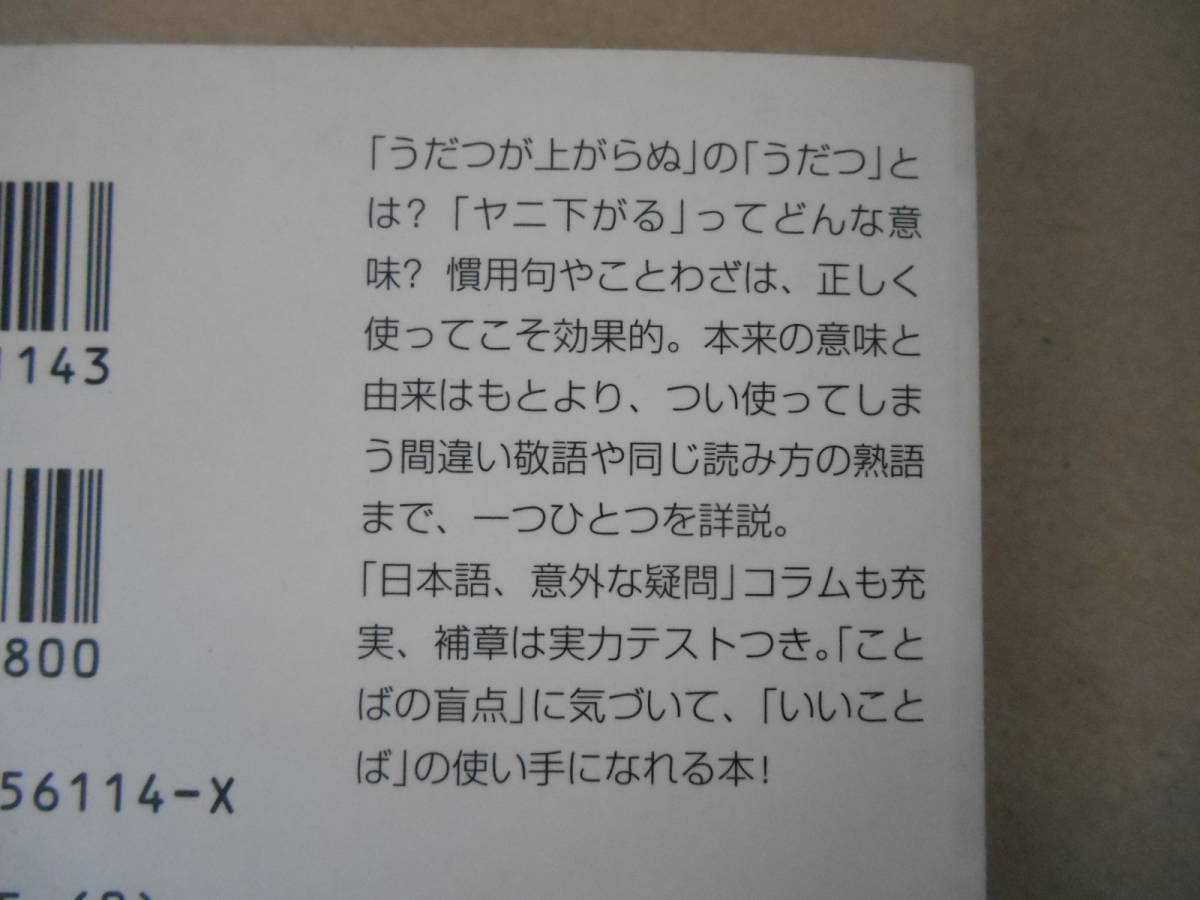 「うだつが上がらぬ」の「うだつ」と
は?「ヤニ下がる」ってどんな意
味? 慣用句やことわざは、正しく
使ってこそ効果的。本来の意味と
由来はもとより、つい使ってしま
う間違い敬語や同じ読み方の熟語
まで、一つひとつを詳説。
「日本語、意外な疑問」コラムも充
実、補章は実力テストつき。「こと
ばの盲点」に気づいて、「いいこと
ば」の使い手になれる本!
1143
800
56114-X